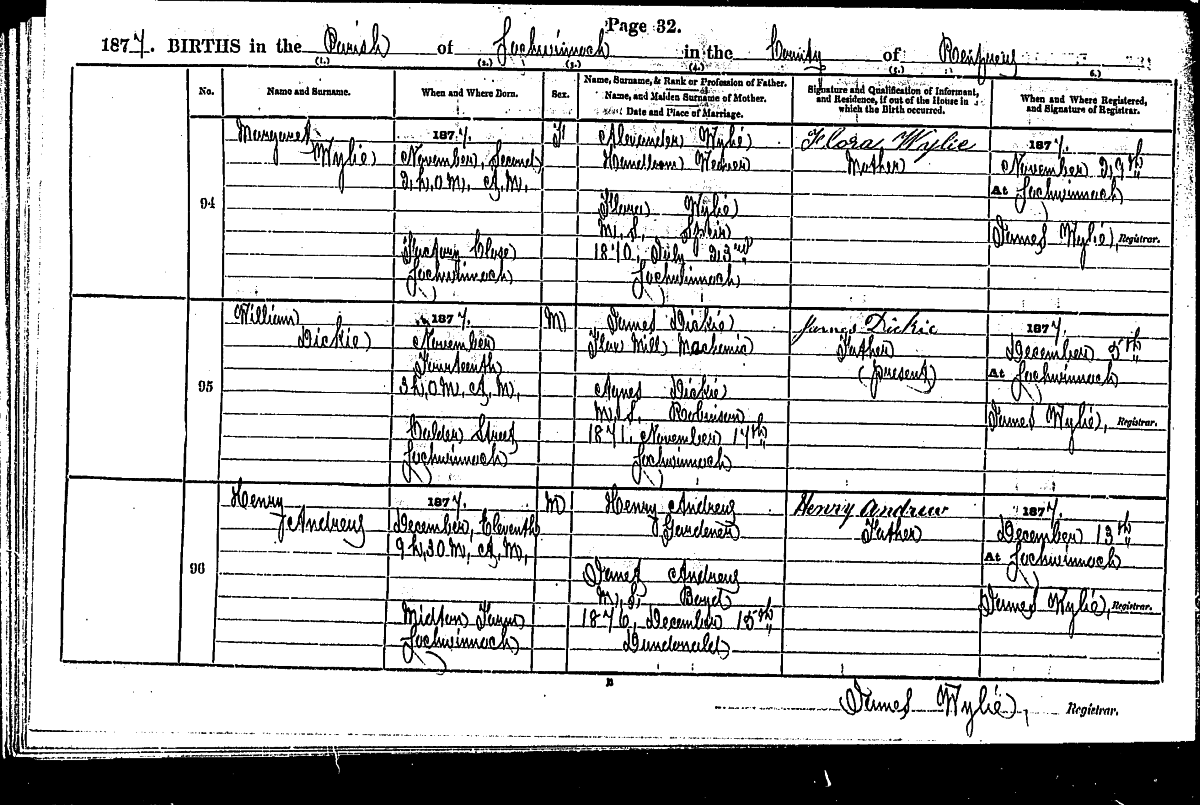 Page 32.
1877. BIRTHS in the Parish of Lochwinnoch in the County of Renfrew
(1.) (2.) (3.) (4.) (5.) 6.)
No.
Name and Surname.
When and Where Born.
Sex.
Name, Surname, & Rank or Profession of Father.
Name, and Maiden Surname of Mother.
Date and Place of Marriage.
Signature and Qualification of Informant,
and Residence, if out of the House in
which the Birth occurred.
When and Where Registered,
and Signature of Registrar.
94
Margaret
Wylie
1877.
November, Second
2 h, 0 M, A, M,
Factory Close
Lochwinnoch
F
Alexander Wylie
Handloom Weaver
Flora Wylie
M, S, Speir
1870, July 23rd
Lochwinnoch
Flora Wylie
Mother
1877.
November 29th
At Lochwinnoch
James Wylie, Registrar.
95
William
Dickie
1877.
November
Fourteenth
3 h, 0 M, A, M,
Calder Street
Lochwinnoch
M
James Dickie
Flax Mill Mechanic
Agnes Dickie
M, S, Robinson
1871, November 17th
Lochwinnoch
James Dickie
Father
(present)
1877.
December 5th
At Lochwinnoch
James Wylie, Registrar.
96
Henry
Andrew
1877.
December, Eleventh
9 h, 30 M, A, M,
Midton Farm
Lochwinnoch
M
Henry Andrew
Gardener
Andrew
M, S, Boyd
1876, December 15th
Dundonald
Henry Andrew
Father
1877.
December 13th
At Lochwinnoch
James Wylie, Registrar.
James Wylie, Registrar.